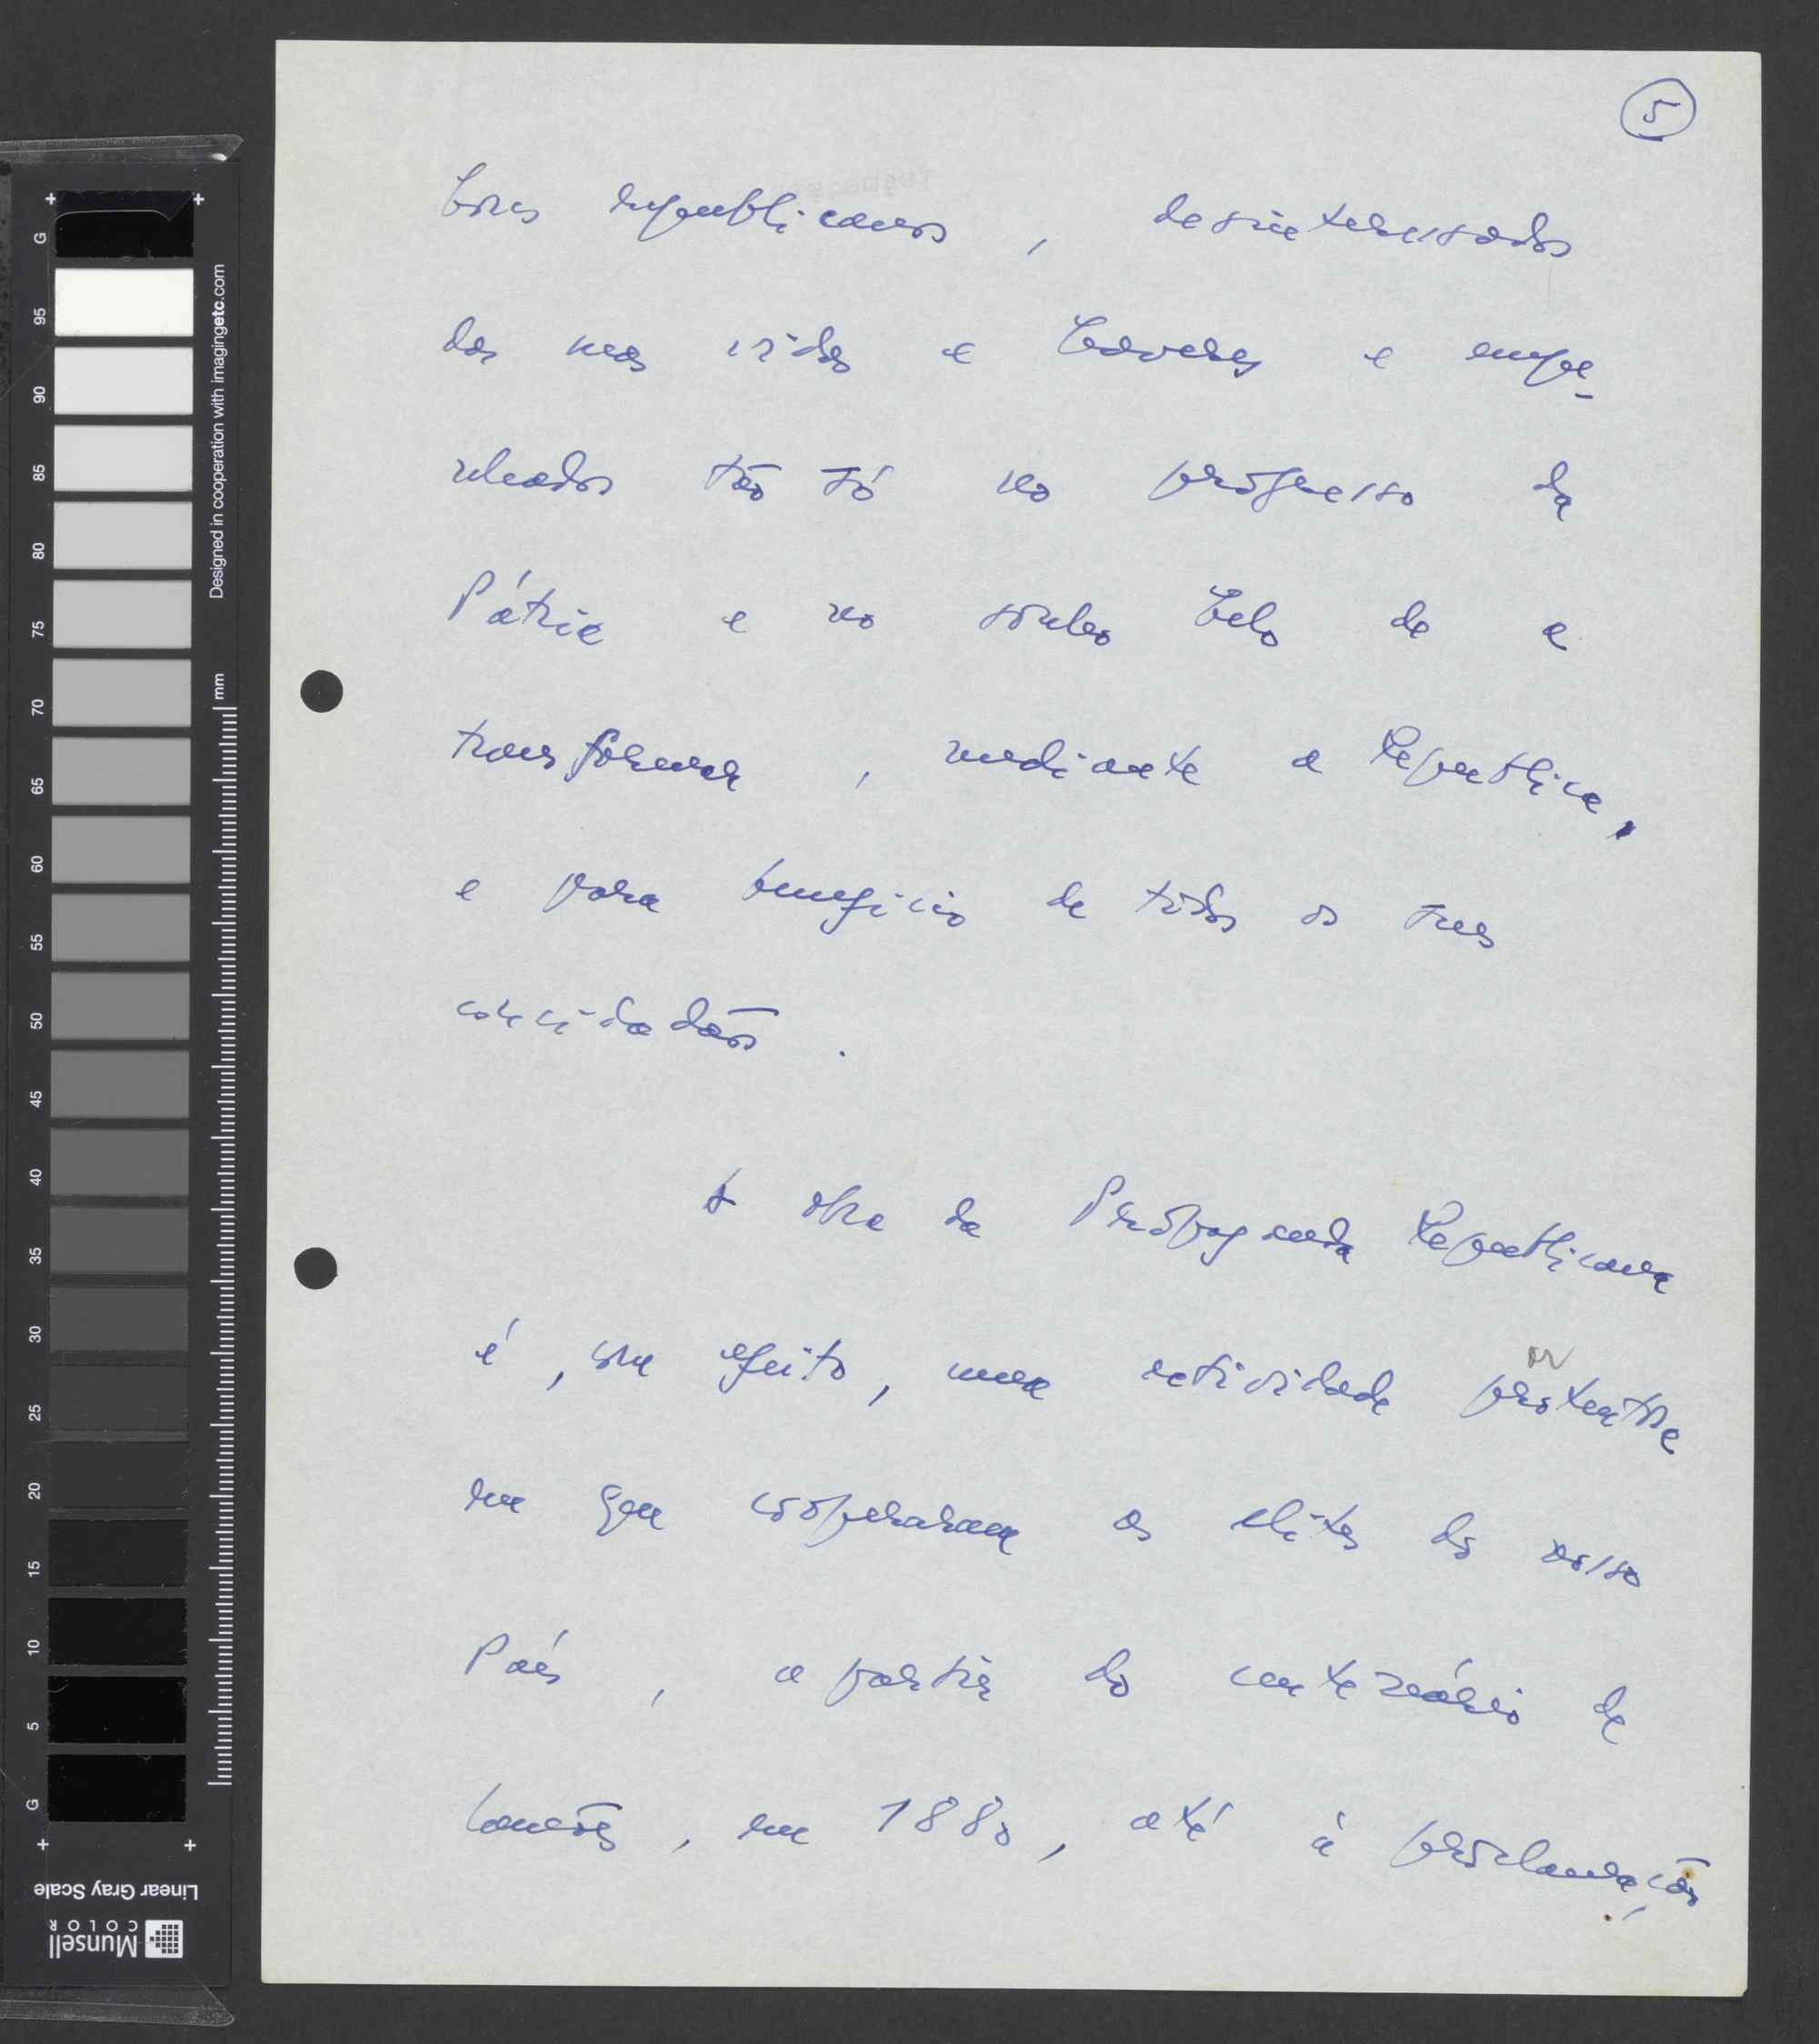 5
bons republicanos, desinteressados
das suas vidas e haveres e empe-
nhados tão só no progresso da
Pátria e no sonho belo de a
transformar, mediante a República,
e para benefício de todos os seus
concidadãos.
A obra da Propaganda Republicana
é, com efeito, uma actividade portentosa
em que cooperaram as elites do nosso
País, a partir do centenário de
Camões, em 1880, até à proclamação
Designed in cooperation with imagingetc.com
mm
G 95 90 85 80 75 70 65 60 55 50 45 40 35 30 25 20 15 10 5 G
Linear Gray Scale
Munsell
COLOR